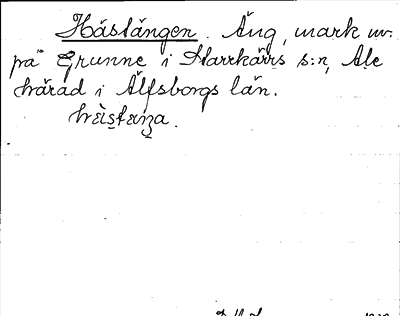 Hästängen. Äng, mark m.
på Grunne i Starrkärrs s:n, Ale
härad i Älfsborgs län.